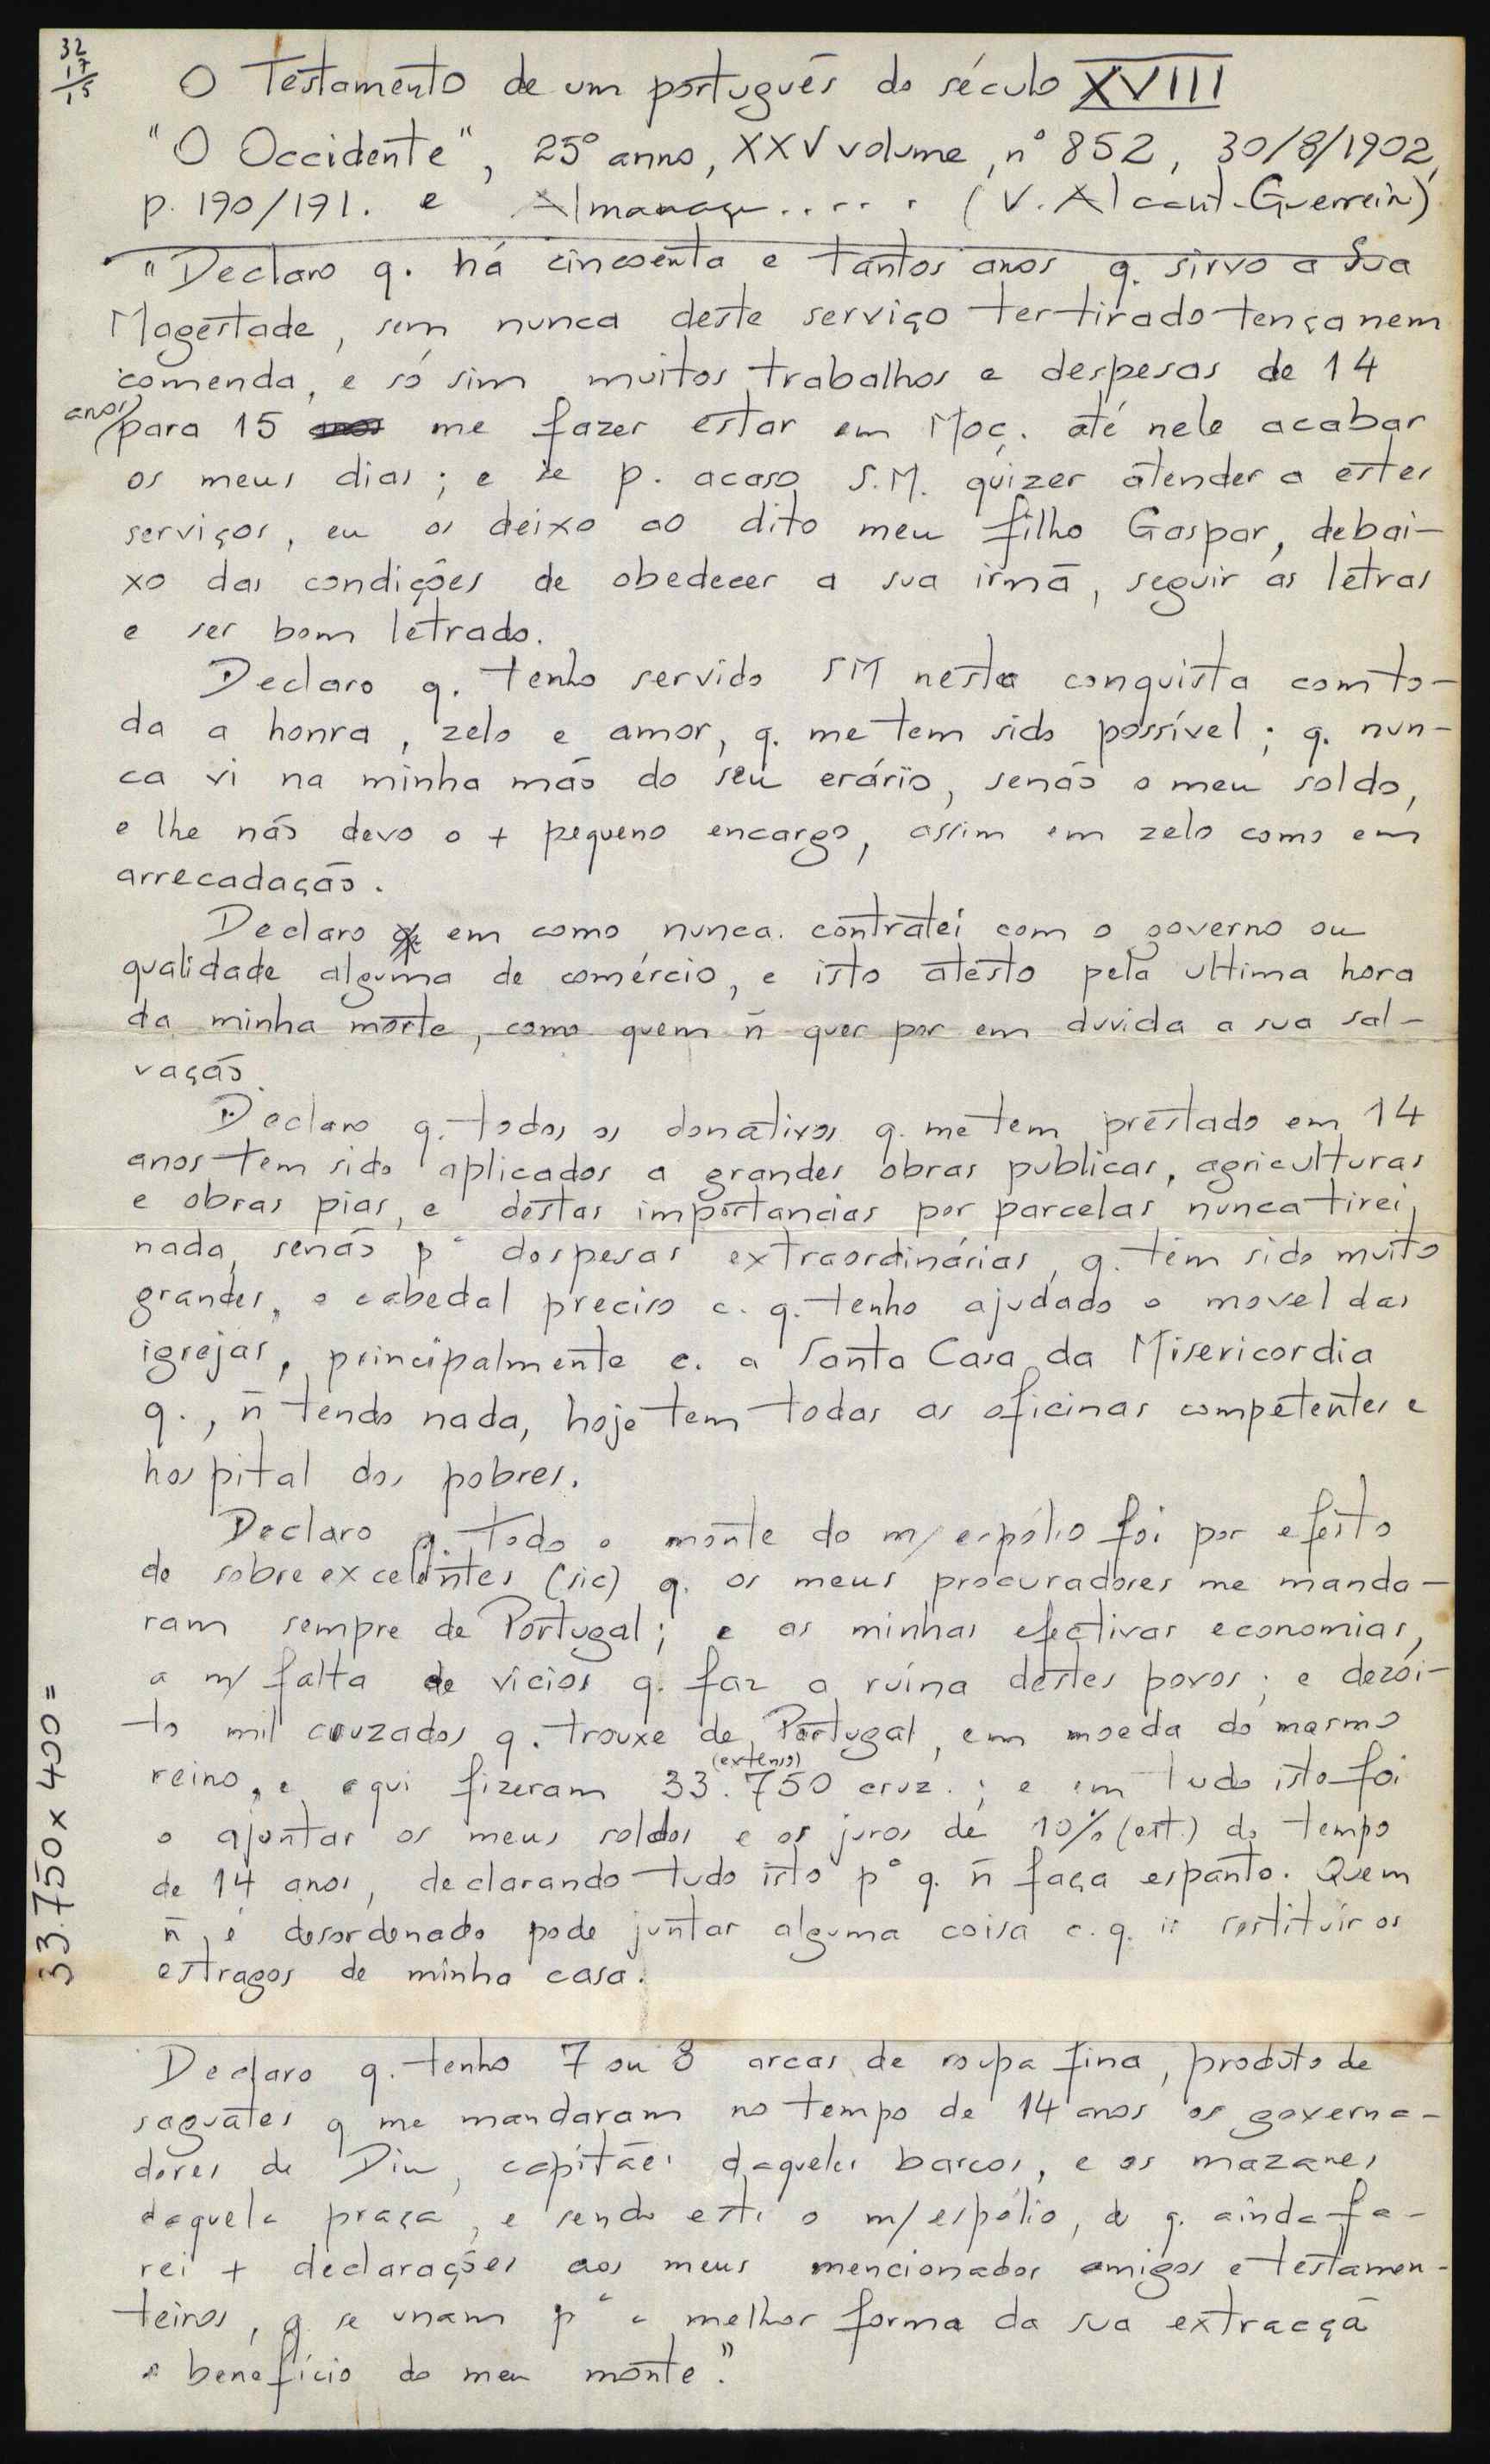 32
17
15
O Testamento de um português do século XVIII
"O Occidente", 25º anno, XXV volume, nº 852, 30/8/1902,
p. 190/191. e Almanaque..... (V. Alcant. Guerreiro)
"Declaro q. há cincoenta e tantos anos q. sirvo a Sua
Magestade, sem nunca deste serviço ter tirado tença nem
comenda, e só sim muitos trabalhos e despesas de 14
anos para 15 me fazer estar em Moç. até nele acabar
os meus dias; e se p. acaso S.M. quizer atender a estes
serviços, eu os deixo ao dito meu filho Gaspar, debai-
xo das condições de obedecer a sua irmã, seguir as letras
e ser bom letrado.
Declaro q. tenho servido SM nesta conquista com to-
da a honra, zelo e amor, q. me tem sido possível; q. nun-
ca vi na minha mão do seu erário, senão o meu soldo,
e lhe não devo o + pequeno encargo, assim em zelo como em
arrecadação.
Declaro em como nunca contratei com o governo ou
qualidade alguma de comércio, e isto atesto pela ultima hora
da minha morte, como quem ñ quer por em duvida a sua sal-
vação.
Declaro q. todos os donativos q. me tem prestado em 14
anos tem sido aplicados a grandes obras publicas, agriculturas
e obras pias, e destas importancias por parcelas nunca tirei
nada, senão pª despesas extraordinárias, q. têm sido muito
grandes, o cabedal preciso c. q. tenho ajudado o movel das
igrejas, principalmente c. a Santa Casa da Misericordia
q., ñ tendo nada, hoje tem todas as oficinas competentes e
hospital dos pobres.
Declaro q. todo o monte do m/ espólio foi por efeito
de sobreexcelentes (sic) q. os meus procuradores me manda-
ram sempre de Portugal; e as minhas efectivas economias,
a m/ falta de vicios q. faz a ruína destes povos; e dezoi-
to mil cruzados q. trouxe de Portugal, em moeda do mesmo
reino, e aqui fizeram 33.750 (extenso) cruz.; e em tudo isto foi
o ajuntar os meus soldos e os juros de 10% (ext.) do tempo
de 14 anos, declarando tudo isto pª q. ñ faça espanto. Quem
ñ é desordenado pode juntar alguma coisa c. q. ir restituir os
estragos de minha casa.
33.750 x 400 =
Declaro q. tenho 7 ou 8 arcas de roupa fina, produto de
saguates q me mandaram no tempo de 14 anos os governa-
dores de Diu, capitães daqueles barcos, e os mazanes
daquela praça, e sendo este o m/ espólio, de q. ainda fa-
rei + declarações aos meus mencionados amigos e testamen-
teiros, q se unam pª a melhor forma da sua extracçã
e benefício do meu monte."